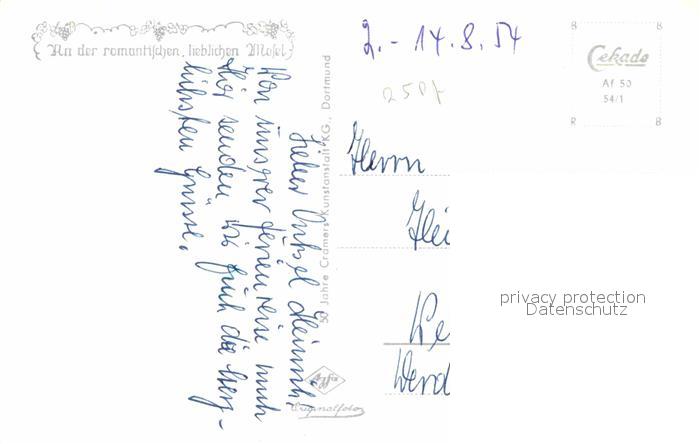 An der romantischen, lieblichen Mosel
2. - 14. 8. 54
25 Pf
Cekade
Af 50
54/1
50 Jahre Cramers Kunstanstalt KG., Dortmund
Lieber Onkel Heinrich,
Von unsrer Ferienreise nach
hier senden wir Euch die herz-
lichsten Grüsse.
Herrn
Hei
We
Werd
Agfa
Originalfoto
privacy protection
Datenschutz